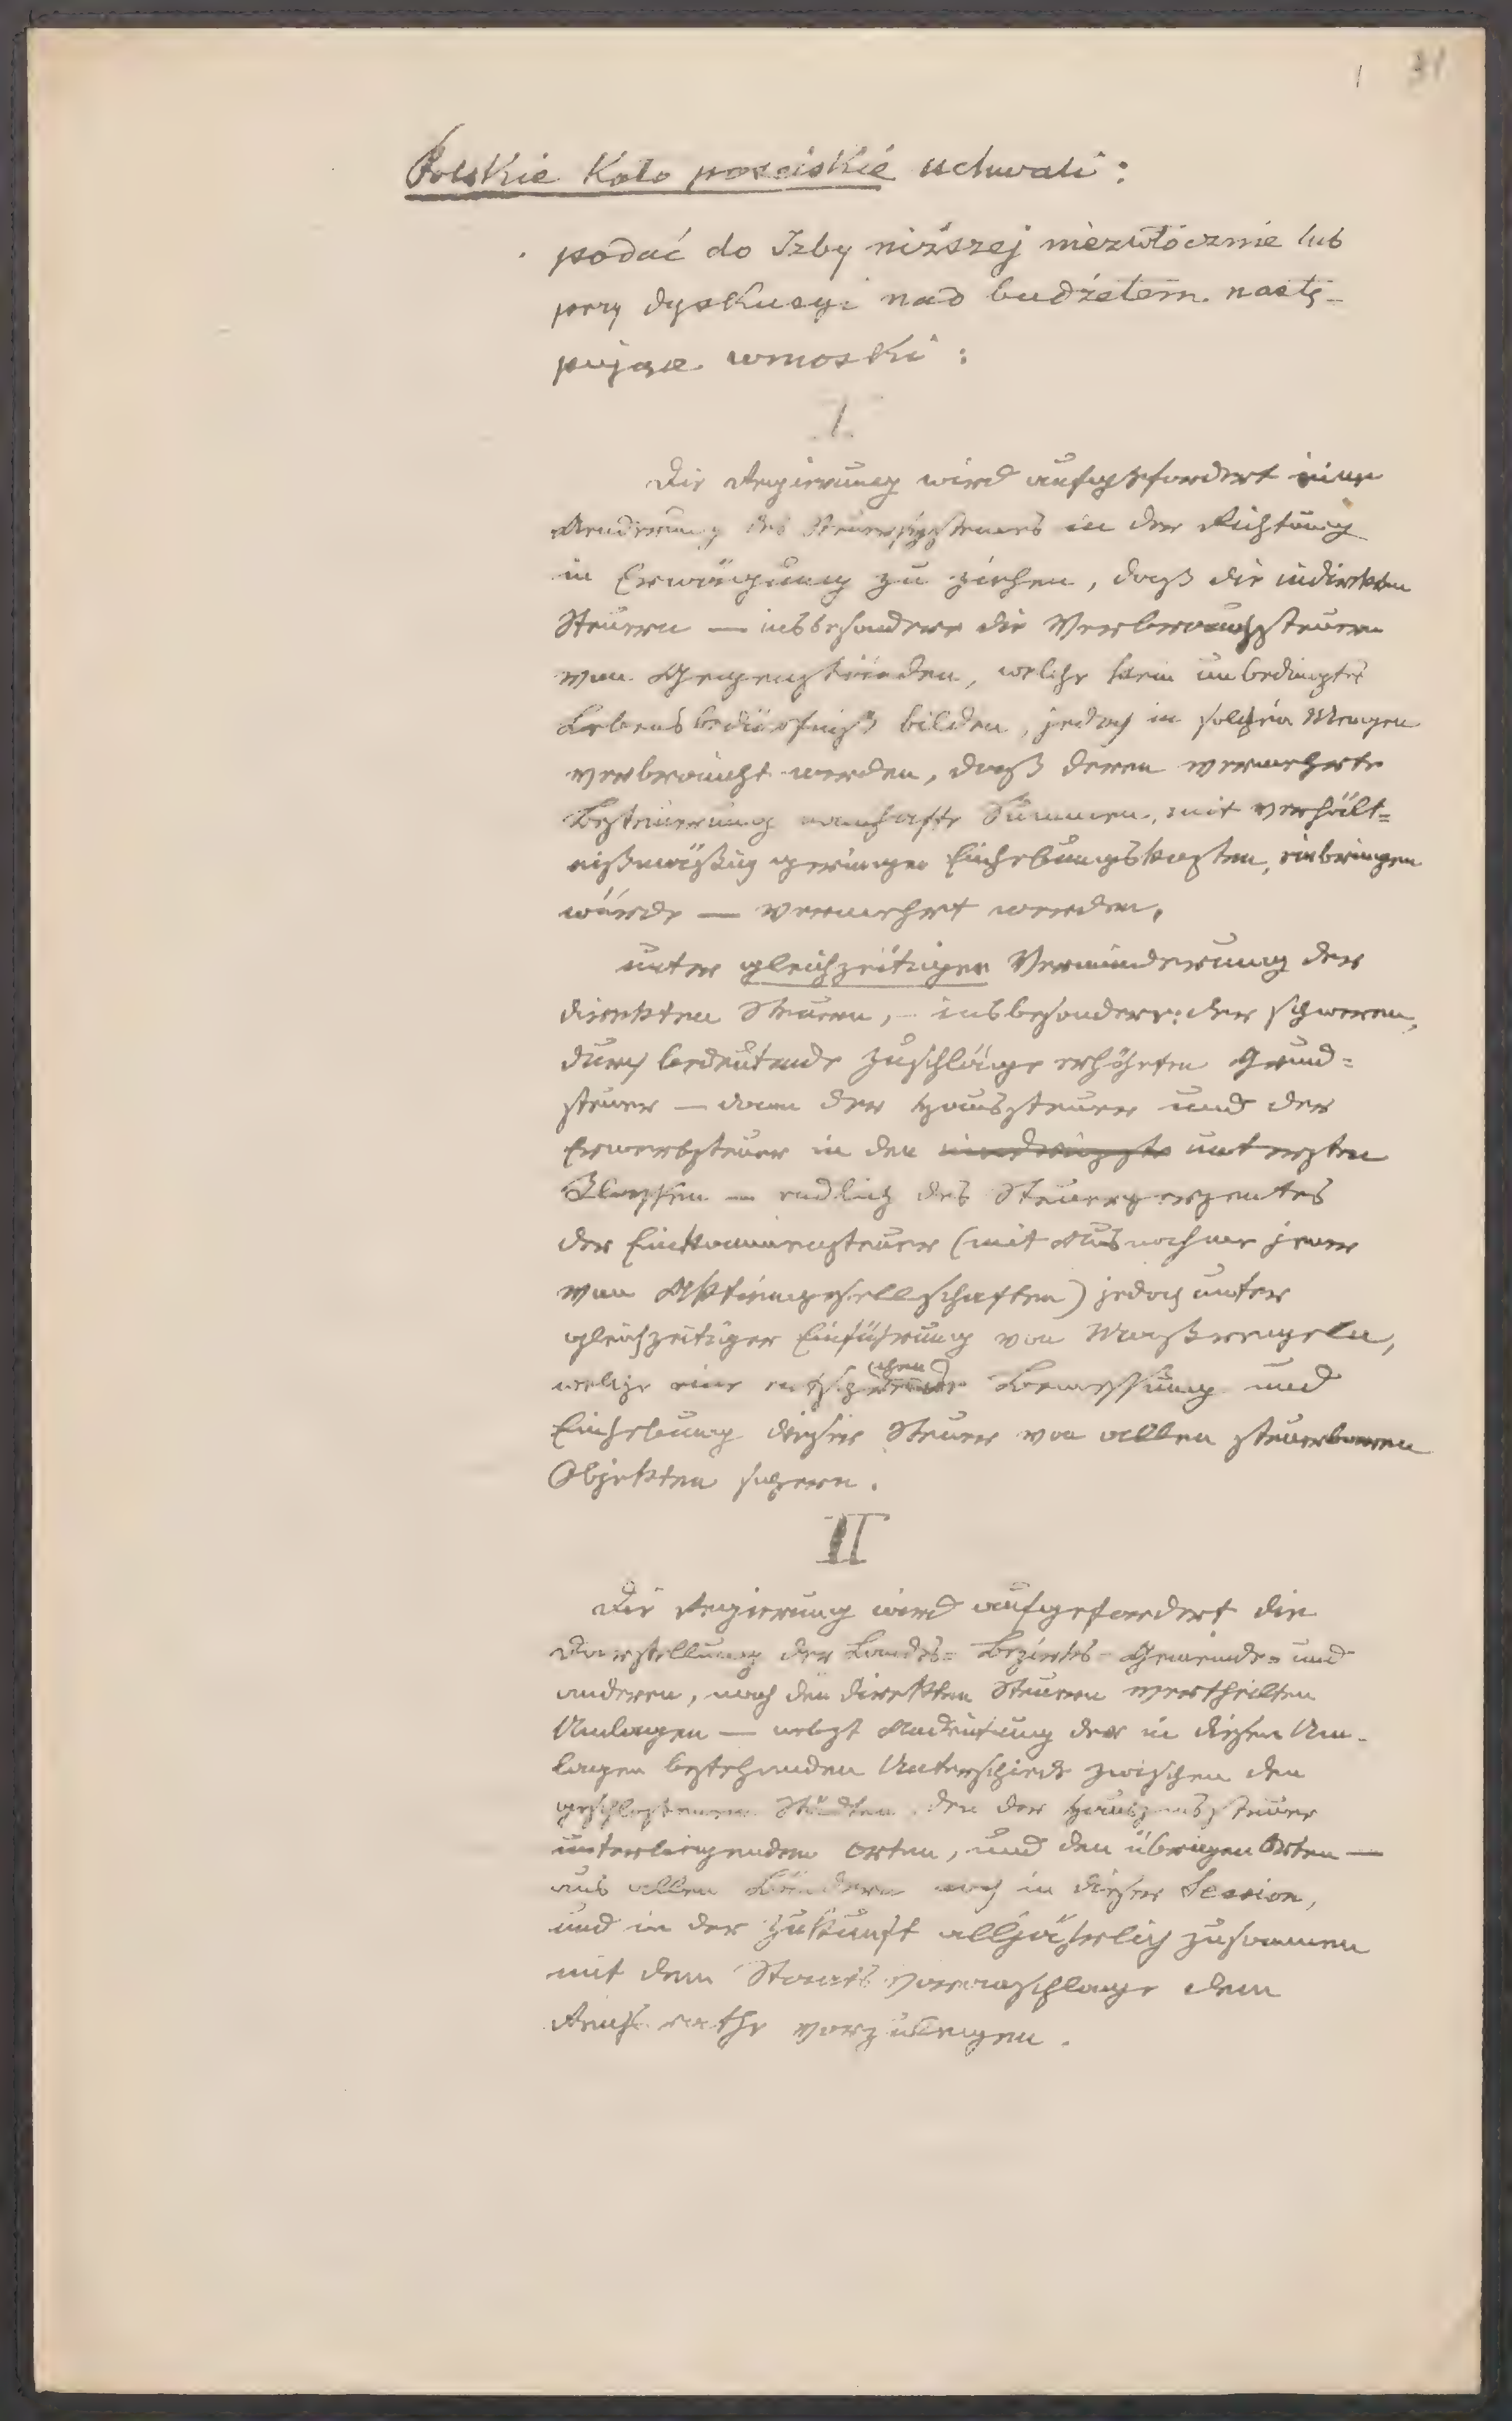 1 31
Polskie Koło poselskie uchwali:
podać do Izby niższej niezwłocznie lub
przy dyskusyi nad budżetem nastę-
pujące wnioski:
I.
Die Regierung wird aufgefordert eine
Aenderung des Steuersystemes in der Richtung
in Erwägung zu ziehen, daß die indirekten
Steuern — insbesondere die Verbrauchssteuern
von Gegenständen, welche kein unbedingtes
Lebensbedürfniß bilden, jedoch in solchen Mengen
verbraucht werden, daß deren vermehrte
Besteuerung namhafte Summen, mit verhält=
nißmäßig geringen Einhebungskosten, einbringen
würde — vermehrt werden,
unter gleichzeitiger Verminderung der
direkten Steuern, – insbesondere: der schweren,
durch bedeutende Zuschläge erhöhten Grund=
steuer — dann der Haussteuer und der
Erwerbsteuer in den untersten
Klassen — endlich des Steuerperzentes
der Einkommensteuer (mit Ausnahme jener
von Aktiengesellschaften) jedoch unter
gleichzeitiger Einführung von Maßregeln,
welche eine Bemessung und
Einhebung dieser Steuer von allen steuerbaren
Objekten sichern.
II
Die Regierung wird aufgefordert die
Darstellung der Landes= Bezirks- Gemeinde= und
anderen, nach den direkten Steuern vertheilten
Umlagen — nebst Andeutung der in diesen Um-
lagen bestehenden Unterschiede zwischen den
geschlossenen Städten, den der Hauszinssteuer
unterliegenden Orten, und den übrigen Orten —
aus allen Ländern noch in dieser Session,
und in der Zukunft alljährlich zusammen
mit dem Staatsvoranschlage dem
Reichsrathe vorzulegen.